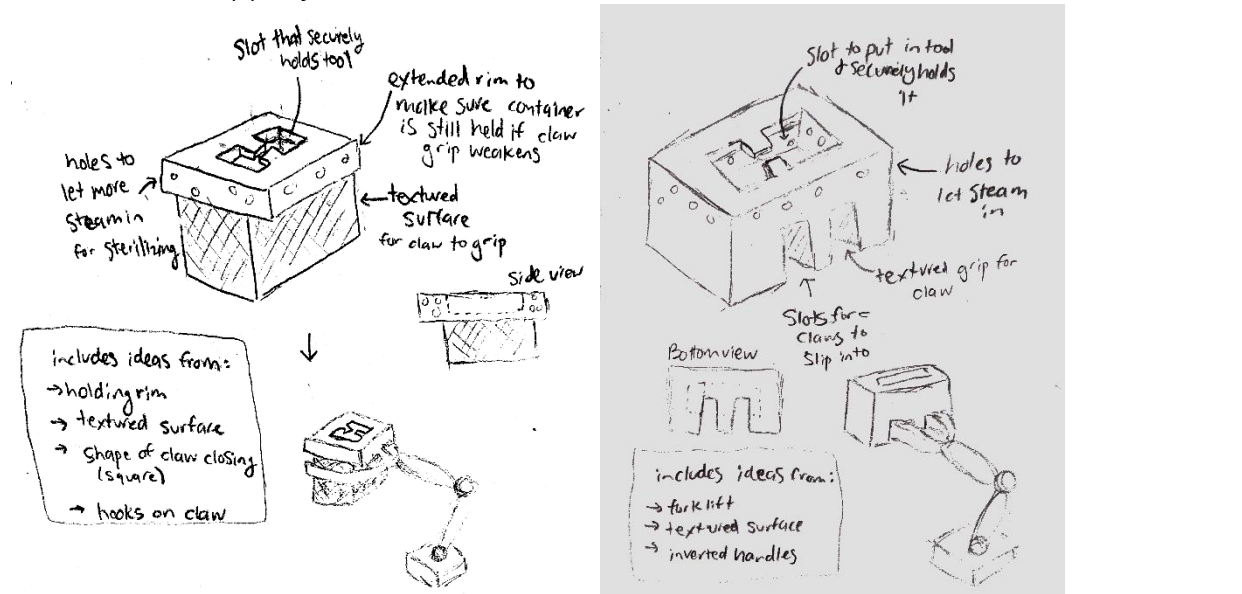 Slot that securely
holds tool
extended rim to
make sure container
is still held if claw
grip weakens
holes to
let more
steam in
for sterilizing
textured
surface
for claw to grip
side view
includes ideas from:
→ holding rim
→ textured surface
→ shape of claw closing
(square)
→ hooks on claw
Slot to put in tool
& securely holds
it
holes to
let steam
in
textured grip for
claw
Slots for
claws to
slip into
Bottom view
includes ideas from:
→ fork lift
→ textured surface
→ inverted handles